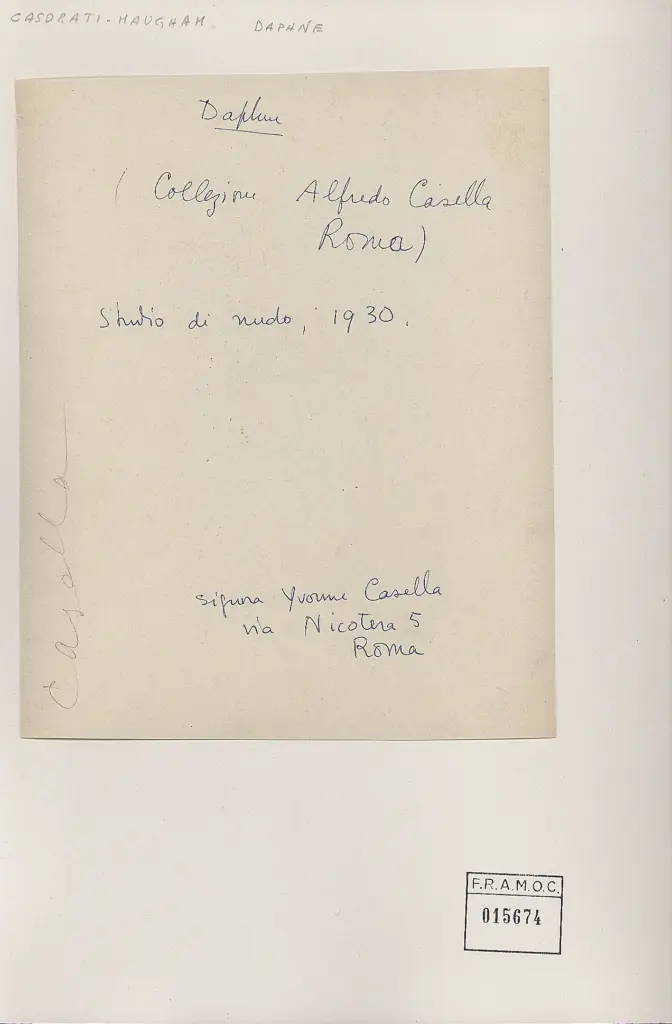 CASORATI-MAUGHAM. DAPHNE
Daphne
(Collezione Alfredo Casella
Roma)
Studio di nudo, 1930.
Casella
signora Yvonne Casella
via Nicotera 5
Roma
F.R.A.M.O.C.
015674